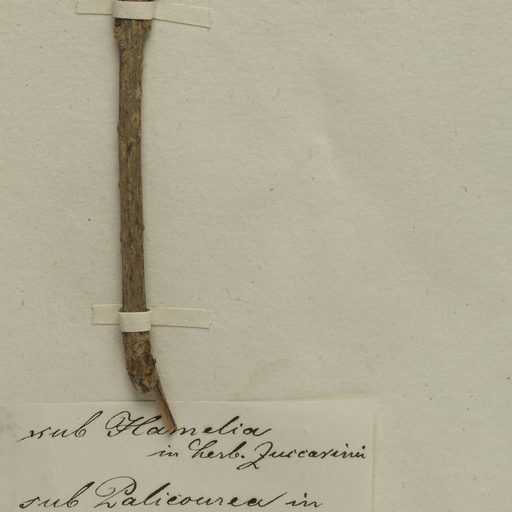 sub Hamelia
in herb. Zuccarini
sub Palicourea in